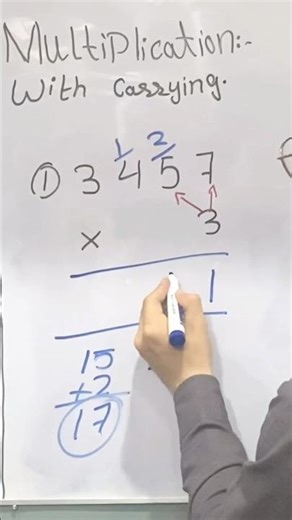 Multiplication:-
With Carrying.
1 2
① 3 4 5 7
× 3
1
15
+2
17